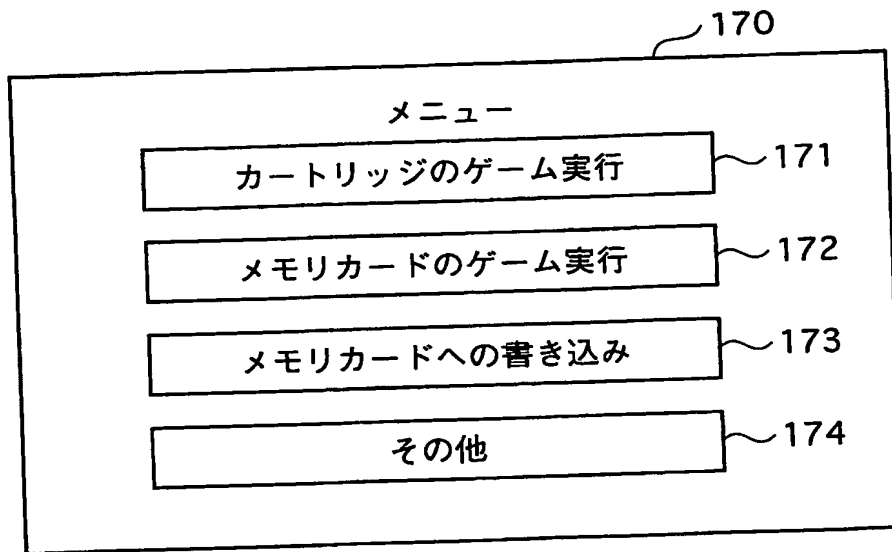 170
メニュー
カートリッジのゲーム実行 171
メモリカードのゲーム実行 172
メモリカードへの書き込み 173
その他 174